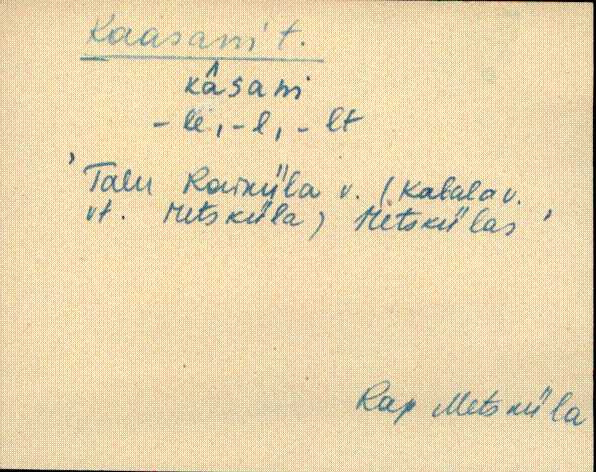 Kaasani t.
kâsani
-le, -l, -lt
'Talu Raiküla v. (Kabala v.
vt. Metsküla) Metskülas'
Rap Metsküla